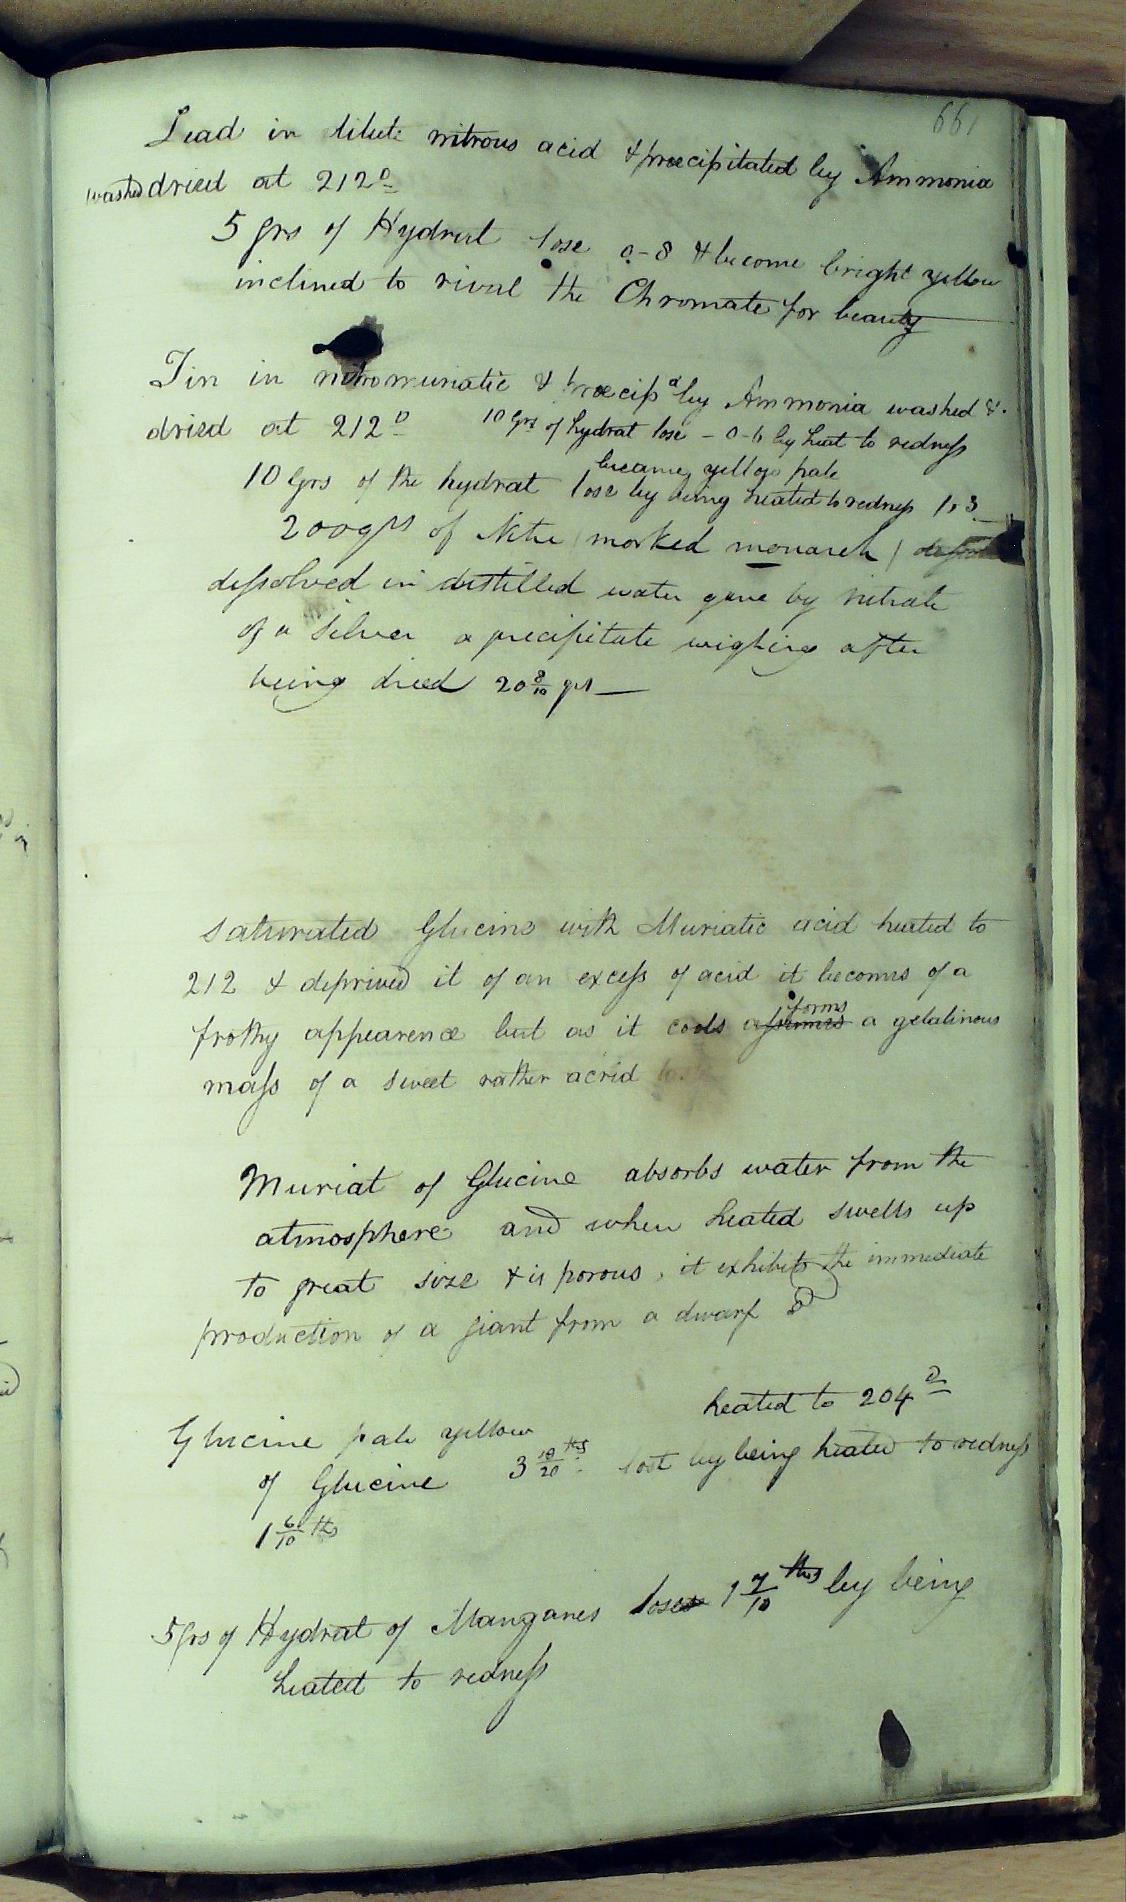 661
Lead in dilute nitrous acid & precipitated by Ammonia
washed dried at 212°
5 grs of Hydrat lose 0-8 & become bright yellow
inclined to rival the Chromate for beauty
Tin in nitromuriatic & precipd by Ammonia washed &
dried at 212° 10 Grs of hydrat lose - 0-6 by heat to redness
became yellow pale
10 Grs of the hydrat lose by being heated to redness 1,3
200 grs of Nitre (marked monarch)
dissolved in distilled water gave by nitrate
of a Silver a precipitate wighing after
being dried 20 8/10 grs
Saturated Glucine with Muriatic acid heated to
212 & deprived it of an excess of acid it becomes of a
frothy appearence but as it cools forms a gelatinous
mass of a sweet rather acrid
Muriat of Glucine absorbs water from the
atmosphere and when heated swells up
to great size & is porous, it exhibits the immediate
production of a giant from a dwarf
heated to 204°
Glucine pale yellow
of Glucine 3 18/20 ths lost by being heated to redness
1 6/10 ths
5 grs of Hydrat of Manganes loses 1 7/10 ths by being
heated to redness